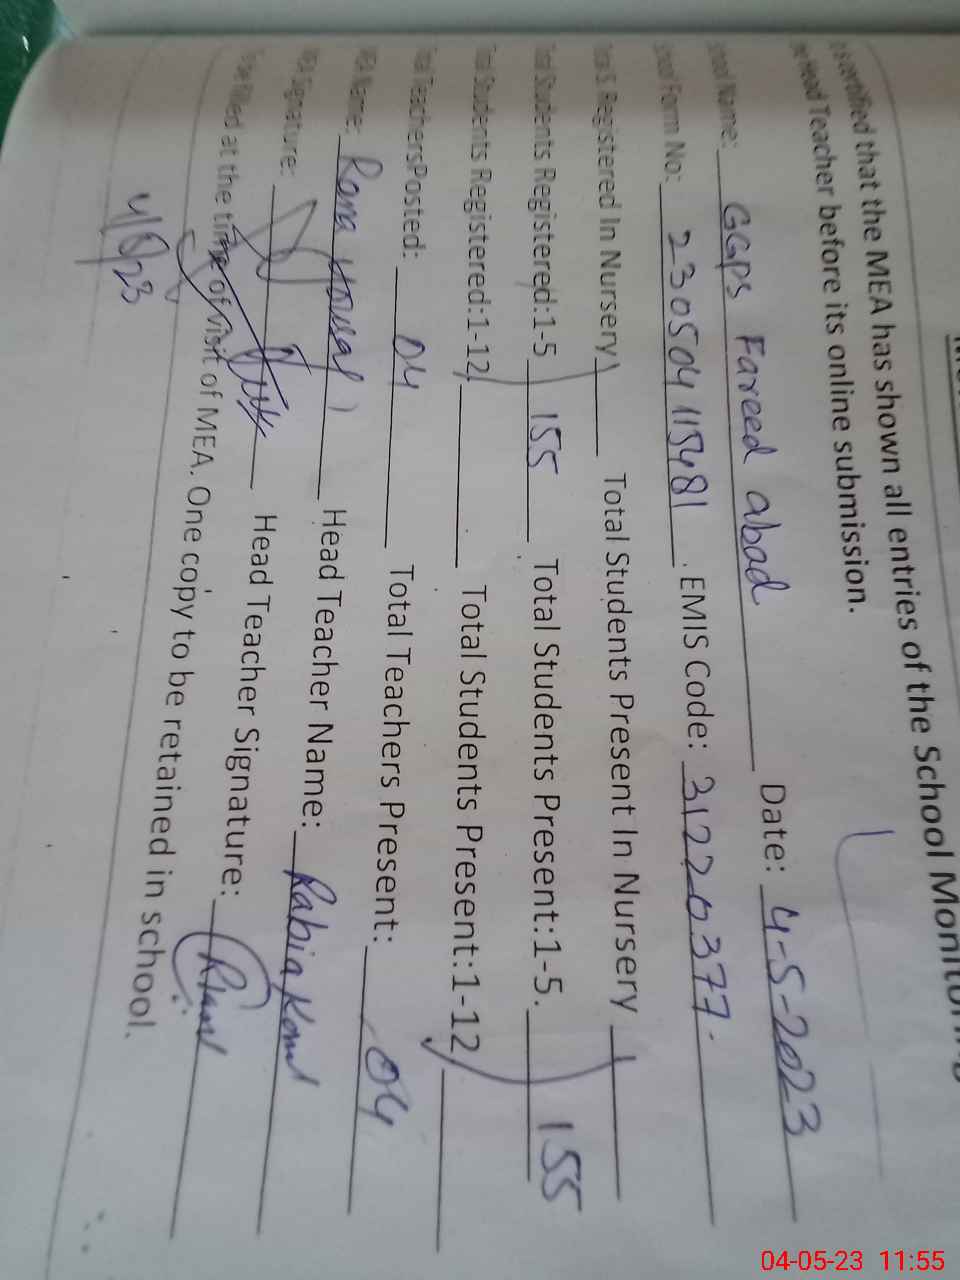 of the School Monitoring
certified that the MEA has shown all entries
Head Teacher before its online submission.
Name: GGPS Fareed abad Date: 4-5-2023
Form No: 230504115481 . EMIS Code: 31220377.
S. Registered In Nursery Total Students Present In Nursery
Students Registered:1-5 155 Total Students Present:1-5. 155
Students Registered:1-12 Total Students Present:1-12
TeachersPosted: 04 Total Teachers Present: 04
Name: Rana Head Teacher Name: Rabia
Signature: Head Teacher Signature:
filled at the time of visit of MEA. One copy to be retained in school.
04-05-23 11:55